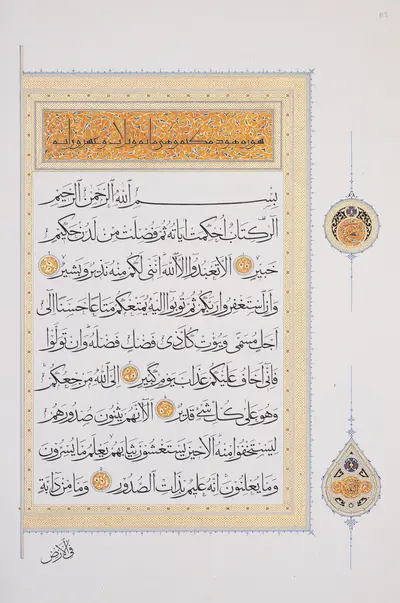 سورة هود مكية وهي مائة وثلاث وعشرون آية
بِسْمِ اللهِ الرَّحْمنِ الرَّحيمِ
الر كِتابٌ اُحْكِمَتْ اياتُهُ ثُمَّ فُصِّلَتْ مِنْ لَدُنْ حَكيمٍ
خَبيرٍ اَلّا تَعْبُدُوا اِلَّا اللهَ اِنَّني لَكُمْ مِنْهُ نَذيرٌ وَبَشيرٌ
وَاَنِ اسْتَغْفِرُوا رَبَّكُمْ ثُمَّ تُوبُوا اِلَيْهِ يُمَتِّعْكُمْ مَتاعًا حَسَنًا اِلى
اَجَلٍ مُسَمًّى وَيُؤْتِ كُلَّ ذي فَضْلٍ فَضْلَهُ وَاِنْ تَوَلَّوْا
فَاِنّي اَخافُ عَلَيْكُمْ عَذابَ يَوْمٍ كَبيرٍ اِلَى اللهِ مَرْجِعُكُمْ
وَهُوَ عَلى كُلِّ شَيْءٍ قَديرٌ اَلا اِنَّهُمْ يَثْنُونَ صُدُورَهُمْ
لِيَسْتَخْفُوا مِنْهُ اَلا حينَ يَسْتَغْشُونَ ثِيابَهُمْ يَعْلَمُ ما يُسِرُّونَ
وَما يُعْلِنُونَ اِنَّهُ عَليمٌ بِذاتِ الصُّدُورِ وَما مِنْ دابَّةٍ
فِي الْاَرْضِ